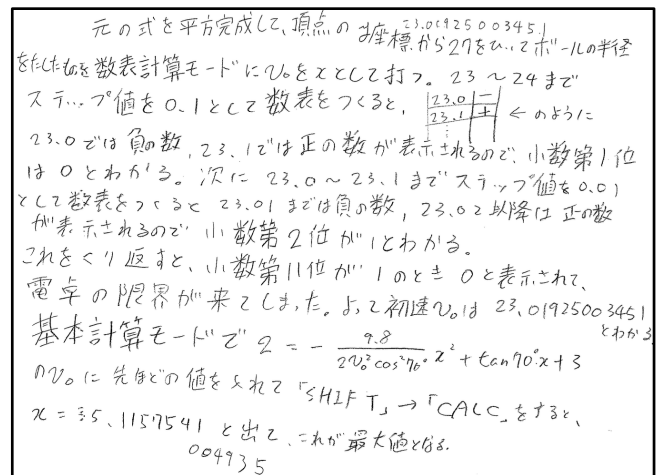 23.01925003451
元の式を平方完成して、頂点のy座標から27をひいてボールの半径
をたしたものを数表計算モードにv₀をxとして打つ。23～24まで
ステップ値を0.1として数表をつくると、 23.0 － 23.1 ＋ ←のように
23.0では負の数、23.1では正の数が表示されるので、小数第1位
は0とわかる。次に23.0～23.1までステップ値を0.01
として数表をつくると23.01までは負の数、23.02以降は正の数
が表示されるので小数第2位が1とわかる。
これをくり返すと、小数第11位が1のとき0と表示されて、
電卓の限界が来てしまった。よって初速v₀は23.01925003451
とわかる。
基本計算モードで 2 = - 9.8/(2v₀²cos²70°) x² + tan70°x + 3
のv₀に先ほどの値を入れて「SHIFT」→「CALC」をすると、
x = 35.1157541 と出て、これが最大値となる。
004935